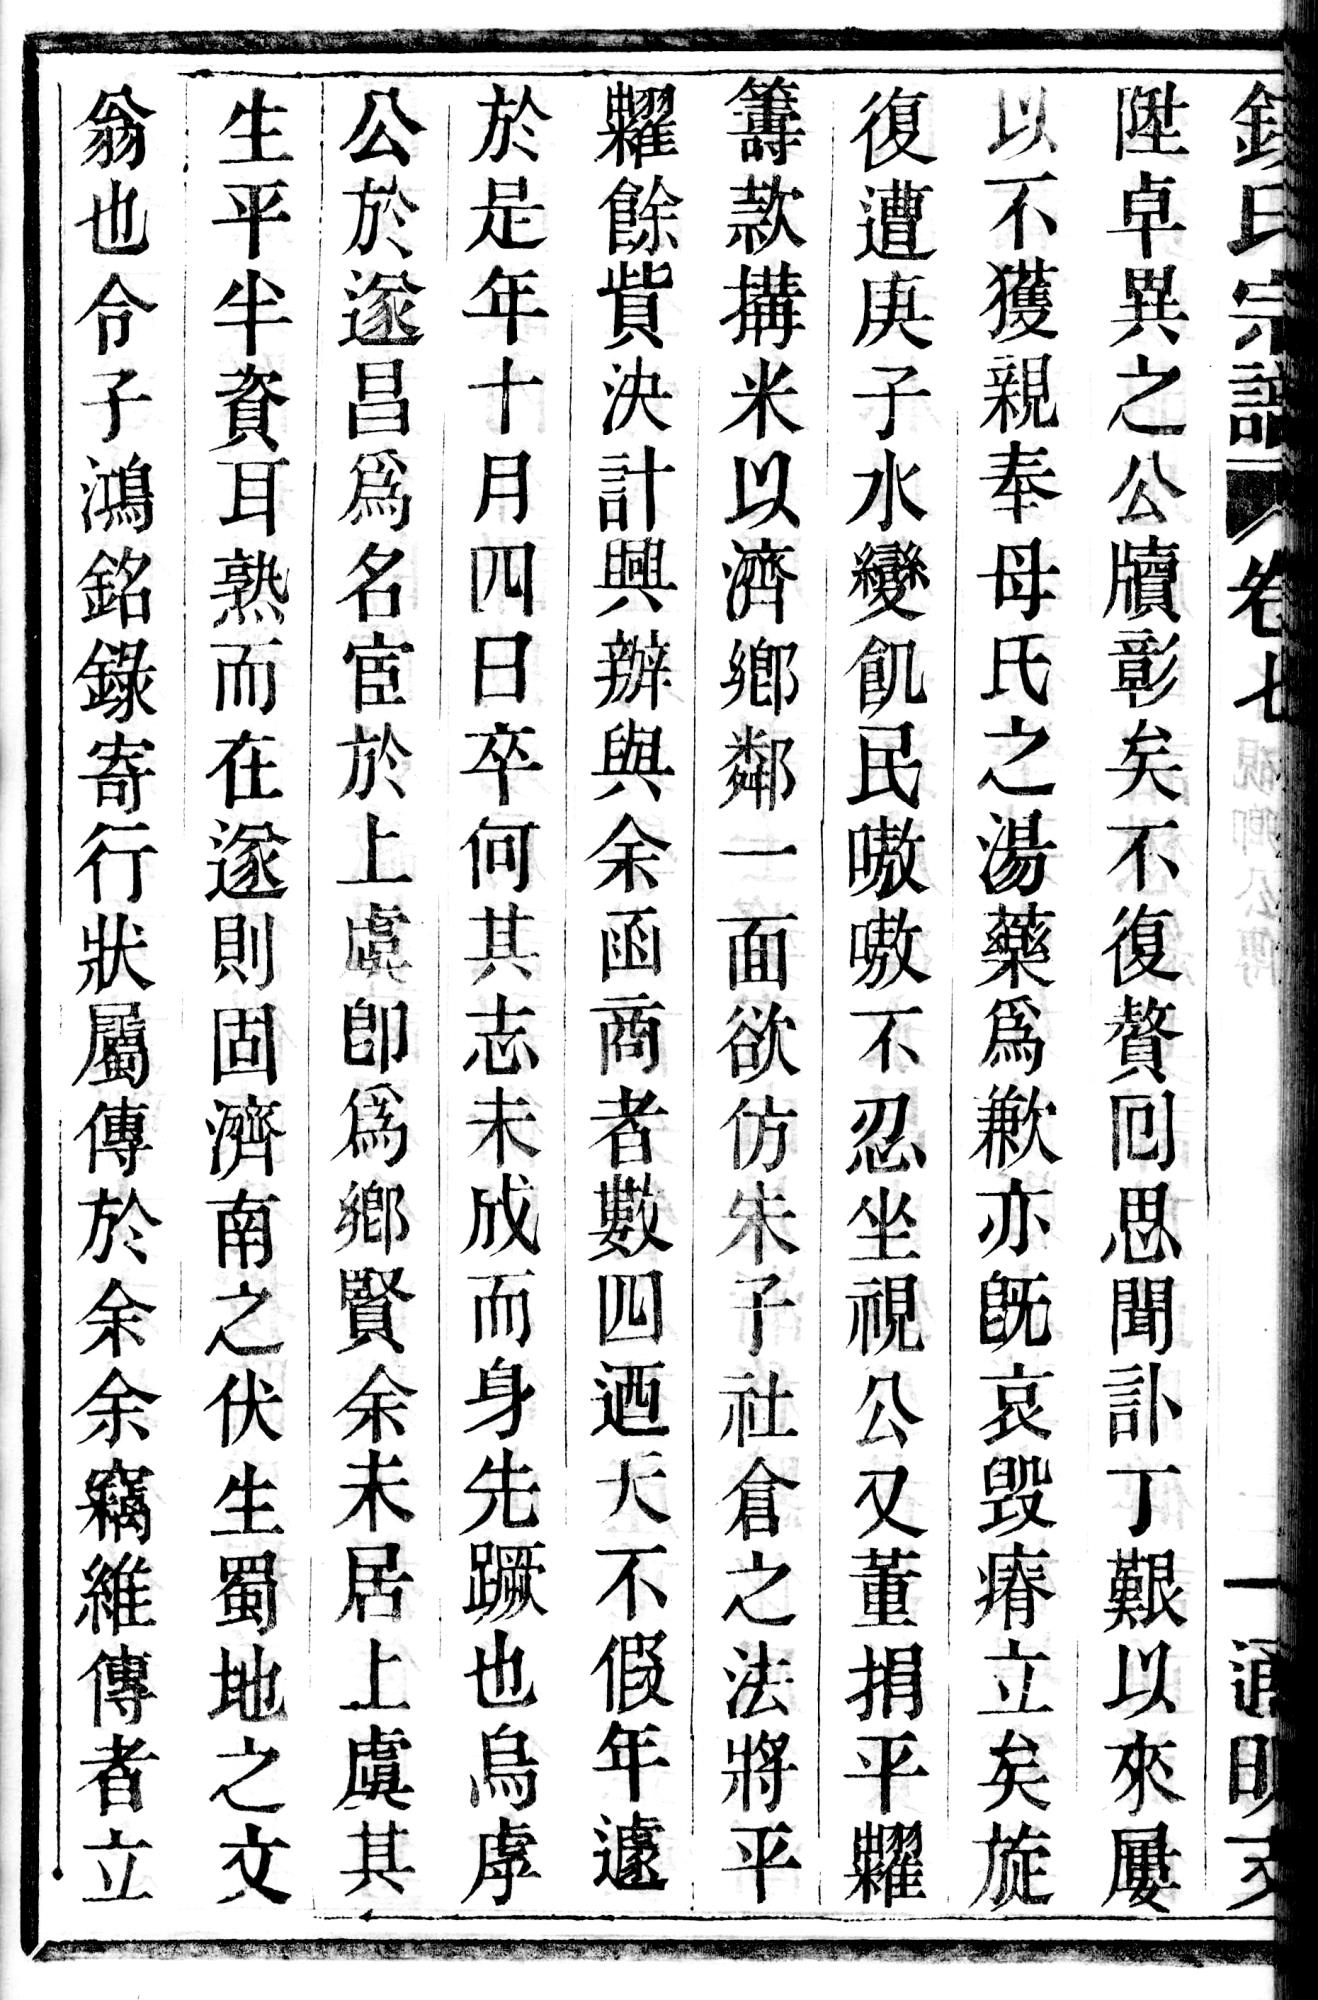 錢氏宗譜 卷七 一 通明支
陞卓異之公牘彰矣不復贅囘思聞訃丁艱以來屢
以不獲親奉母氏之湯藥爲歉亦旣哀毁瘠立矣旋
復遭庚子水變飢民嗷嗷不忍坐視公又董捐平糶
籌款搆米以濟鄕鄰一面欲仿朱子社倉之法將平
糶餘貲決計興辦與余函商者數四迺天不假年遽
於是年十月四日卒何其志未成而身先蹶也烏虖
公於遂昌爲名宦於上虞卽爲鄕賢余未居上虞其
生平半資耳熟而在遂則固濟南之伏生蜀地之文
翁也令子鴻銘錄寄行狀屬傳於余余竊維傳者立